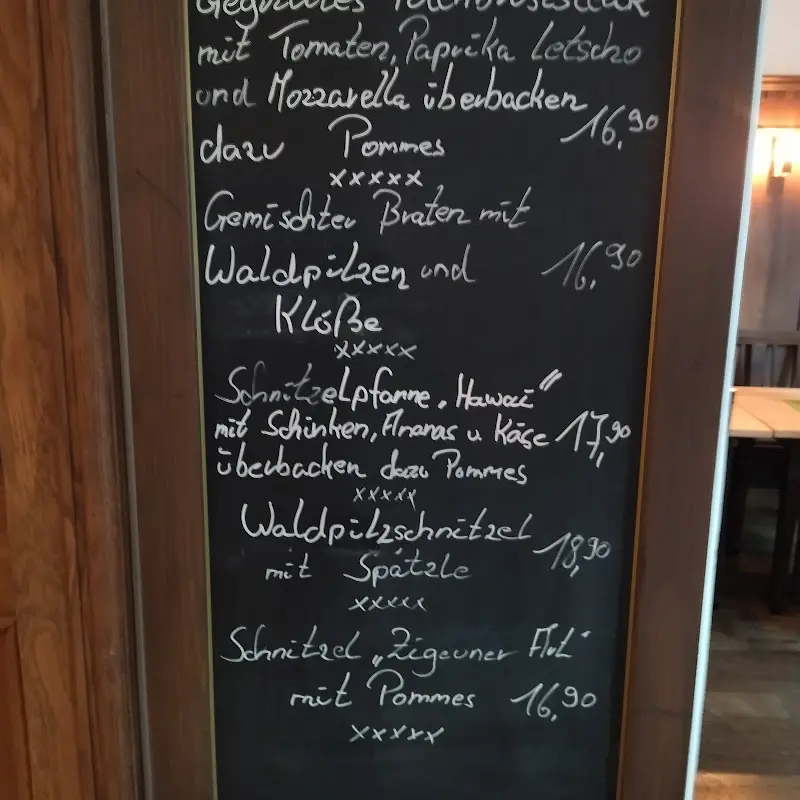 Gegrilltes
mit Tomaten, Paprika Letscho
und Mozzarella überbacken
dazu Pommes 16,90
xxxxx
Gemischter Braten mit
Waldpilzen und 16,90
Klöße
xxxxx
Schnitzelpfanne „Hawaii"
mit Schinken, Ananas u. Käse 17,90
überbacken dazu Pommes
xxxxx
Waldpilzschnitzel
mit Spätzle 18,90
xxxxx
Schnitzel „Zigeuner Art"
mit Pommes 16,90
xxxxx